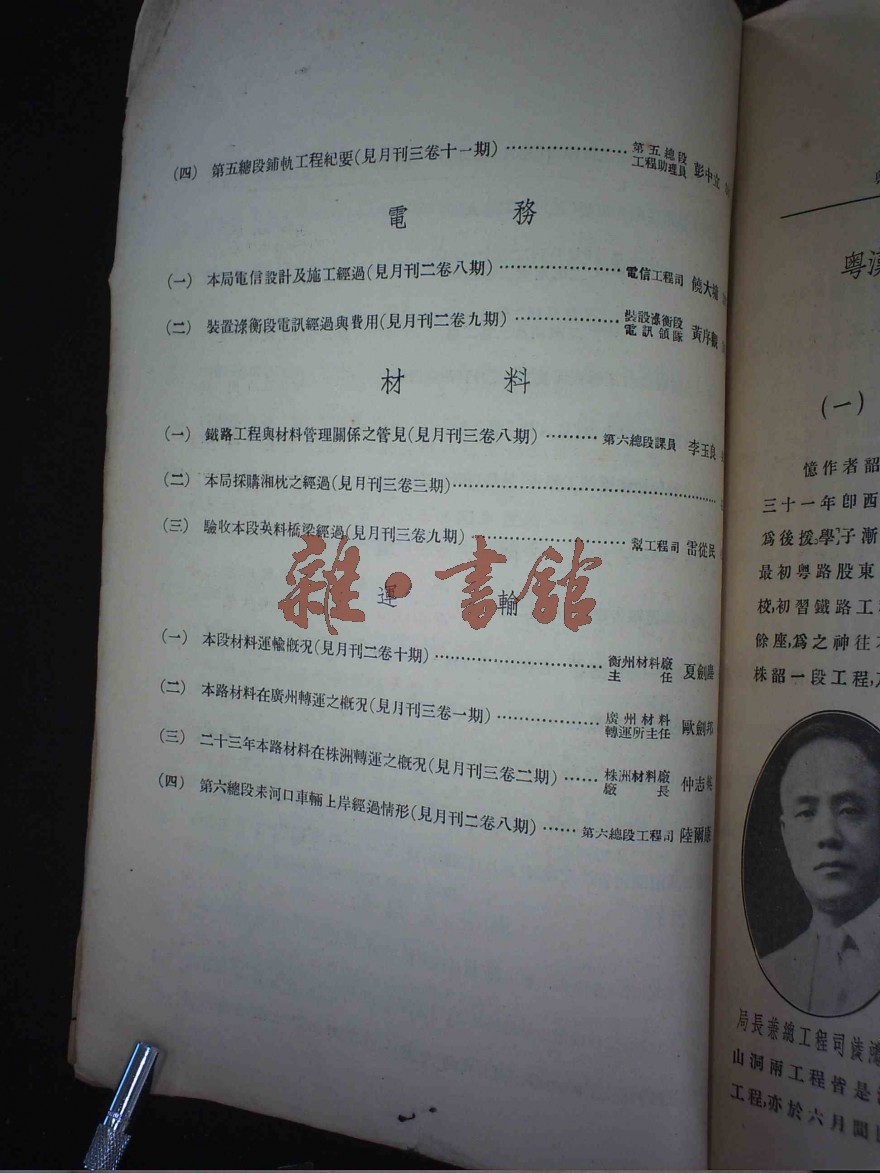 (四) 第五總段鋪軌工程紀要(見月刊三卷十一期)⋯⋯⋯⋯⋯⋯⋯ 第五總段工程助理員 彭中立
電務
(一) 本局電信設計及施工經過(見月刊二卷八期)⋯⋯⋯⋯⋯⋯⋯ 電信工程司 饒大
(二) 裝置淥衡段電訊經過與費用(見月刊二卷九期)⋯⋯⋯⋯⋯⋯ 裝設淥衡段電訊領隊 黃序
材料
(一) 鐵路工程與材料管理關係之管見(見月刊三卷八期)⋯⋯⋯ 第六總段課員 李玉良
(二) 本局採購湘枕之經過(見月刊三卷三期)⋯⋯⋯⋯⋯⋯⋯⋯⋯⋯⋯⋯
(三) 驗收本段英料橋梁經過(見月刊三卷九期)⋯⋯⋯⋯⋯⋯⋯⋯ 幫工程司 雷從民
雜·書館
運輸
(一) 本段材料運輸概況(見月刊二卷十期)⋯⋯⋯⋯⋯⋯⋯⋯ 衡州材料廠主任 夏劍
(二) 本路材料在廣州轉運之概況(見月刊三卷一期)⋯⋯⋯⋯⋯ 廣州材料轉運所主任 歐劍邦
(三) 二十三年本路材料在株洲轉運之概況(見月刊三卷二期)⋯⋯ 株洲材料廠廠長 仲志
(四) 第六總段耒河口車輛上岸經過情形(見月刊二卷八期)⋯⋯ 第六總段工程司 陸爾康
粵漢
(一)
憶作者韶
三十一年卽西
爲後援,學子漸
最初粵路股東
校,初習鐵路工
餘座,爲之神往
株韶一段工程,
局長兼總工程司凌鴻
山洞兩工程皆是
工程,亦於六月間